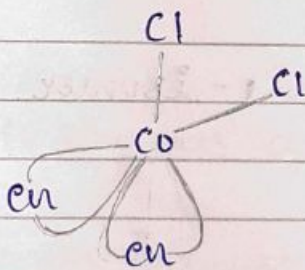 Cl
Cl
Co
en
en